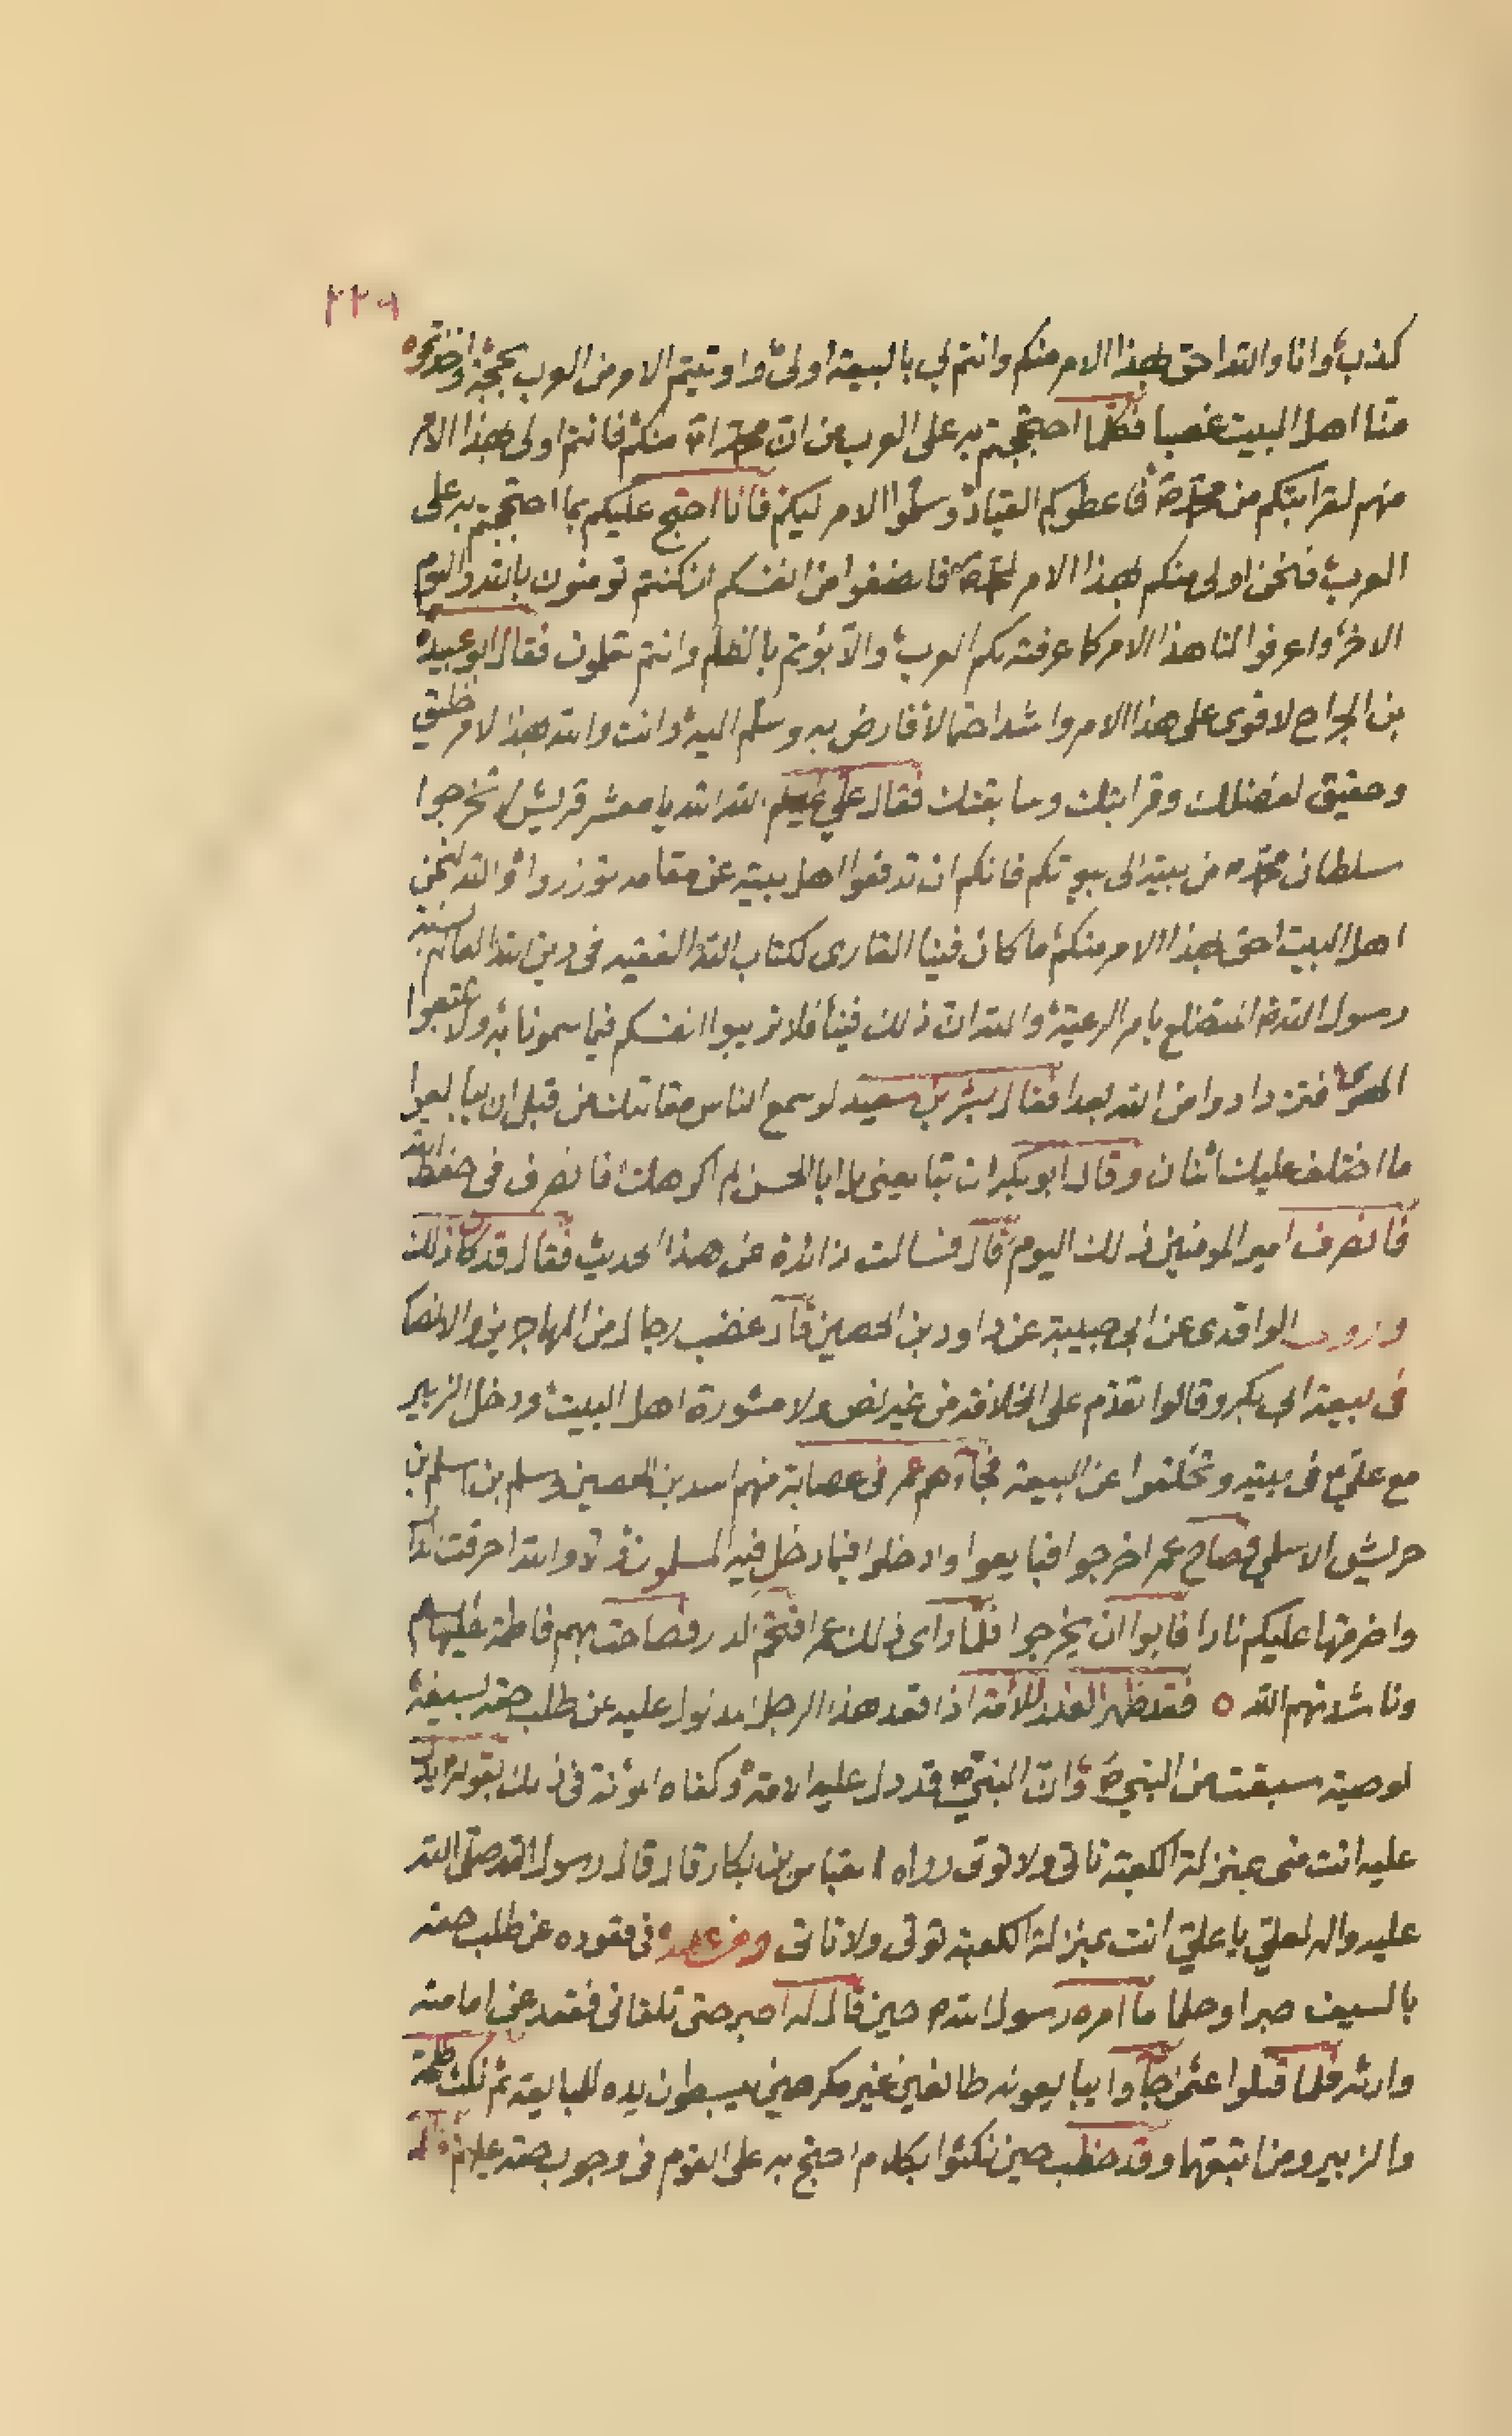 ٢٢٩
كذب وانا والله احق بهذا الامر منكم وانتم لي بالبيعة اولى واوتيتم الامر من العرب بحجة واخذتموه
منّا اهل البيت غصبا فكلما احتججتم به على العرب من انّ محمد انه منكم فانتم اولى بهذا الامر
منهم لقرابتكم من محمد ص فاعطوكم القياد وسلموا الامر ليكم فانا احتج عليكم بما احتججتم به على
العرب فنحن اولى منكم بهذا الامر فانصفوا من انفسكم ان كنتم تومنون بالله واليوم
الاخر واعرفوا لنا هذا الامر كما عرفته لكم العرب والا بوتم بالظلم وانتم تعلمون فقال ابو عبيدة
بن الجراح لا قوى على هذا الامر واشد احتمالا فارض به وسلم اليه وانت والله بهذا لامر خليق
وحقيق لفضلك وقرابتك وسابقتك فقال علي الله الله يا معشر قريش لا تخرجوا
سلطان محمد ص من بيته الى بيوتكم فانكم ان تدفعوا اهل بيته عن مقامه توزروا والله لنحن
اهل البيت احق بهذا الامر منكم ما كان فينا القارى لكتاب الله الفقيه فى دين الله العالم بسنة
رسول الله ص المتضلع بامر الرعية والله ان ذلك فينا فلا تريبوا انفسكم فيما سمونا به ولا تتبعوا
الهوى فتزدادوا من الله بعدا فقال بشر بن سعيد لو سمع الناس مقالتك من قبل ان يبايعوا
ما اختلف عليك اثنان وقال ابو بكر ان تبايعنى يا ابا الحسن لم اكرهك فانصرف فى حفظ الله
فانصرف امير المومنين ذلك اليوم قال فسالت زائدة عن هذا الحديث فقال قد كان ذلك
وروى الواقدى عن ابى حبيبة عن داود بن الحصين قال غضب رجال من المهاجرين والانصا
فى بيعة ابى بكر وقالوا تقدم على الخلافة من غير نص ولا مشورة اهل البيت ودخل الزبير
مع علي ع فى بيته وتخلفوا عن البيعة فجاءهم عمر فى عصابة منهم اسد بن الحصين وسلم بن اسلم بن
حريش الاسلمي فصاح عمر اخرجوا فبايعوا وادخلوا فيما دخل فيه المسلمون والا والله احرقت الدا
واضرمتها عليكم نارا فابوا ان يخرجوا فلما راى ذلك عمر اقتحم الدر فصاحت بهم فاطمة عليها السلم
وناشدتهم الله ٥ فقد ظهر العذر للامة اذا قعد هذا الرجل عن طلب حقه بسيفه
لوصية سبقت من النبي ص وان النبي ص قد دل عليه الامة وكفاه المؤنة فى ذلك بقوله
عليه انت منى بمنزلة الكعبة تاتى ولا توتى رواه العباس بن بكار قال قال رسول الله صلى الله
عليه واله لعلي يا علي انت بمنزلة الكعبة توتى ولا تاتى فى قعوده عن طلب حقه
بالسيف صبرا وحلما ما امره رسول الله ص حين قال له اصبر حتى تلقانى فقعد عن امامته
وارثه فلما قتلوا عثمن جاوا يبايعونه طائفين غير مكرهين يبسطون يده للمبايعة ثم نكث طلحة
والزبير ومن اتبعهما وقد خطب حين نكثوا بكلام احتج به على القوم فى وجوب حقه عليهم